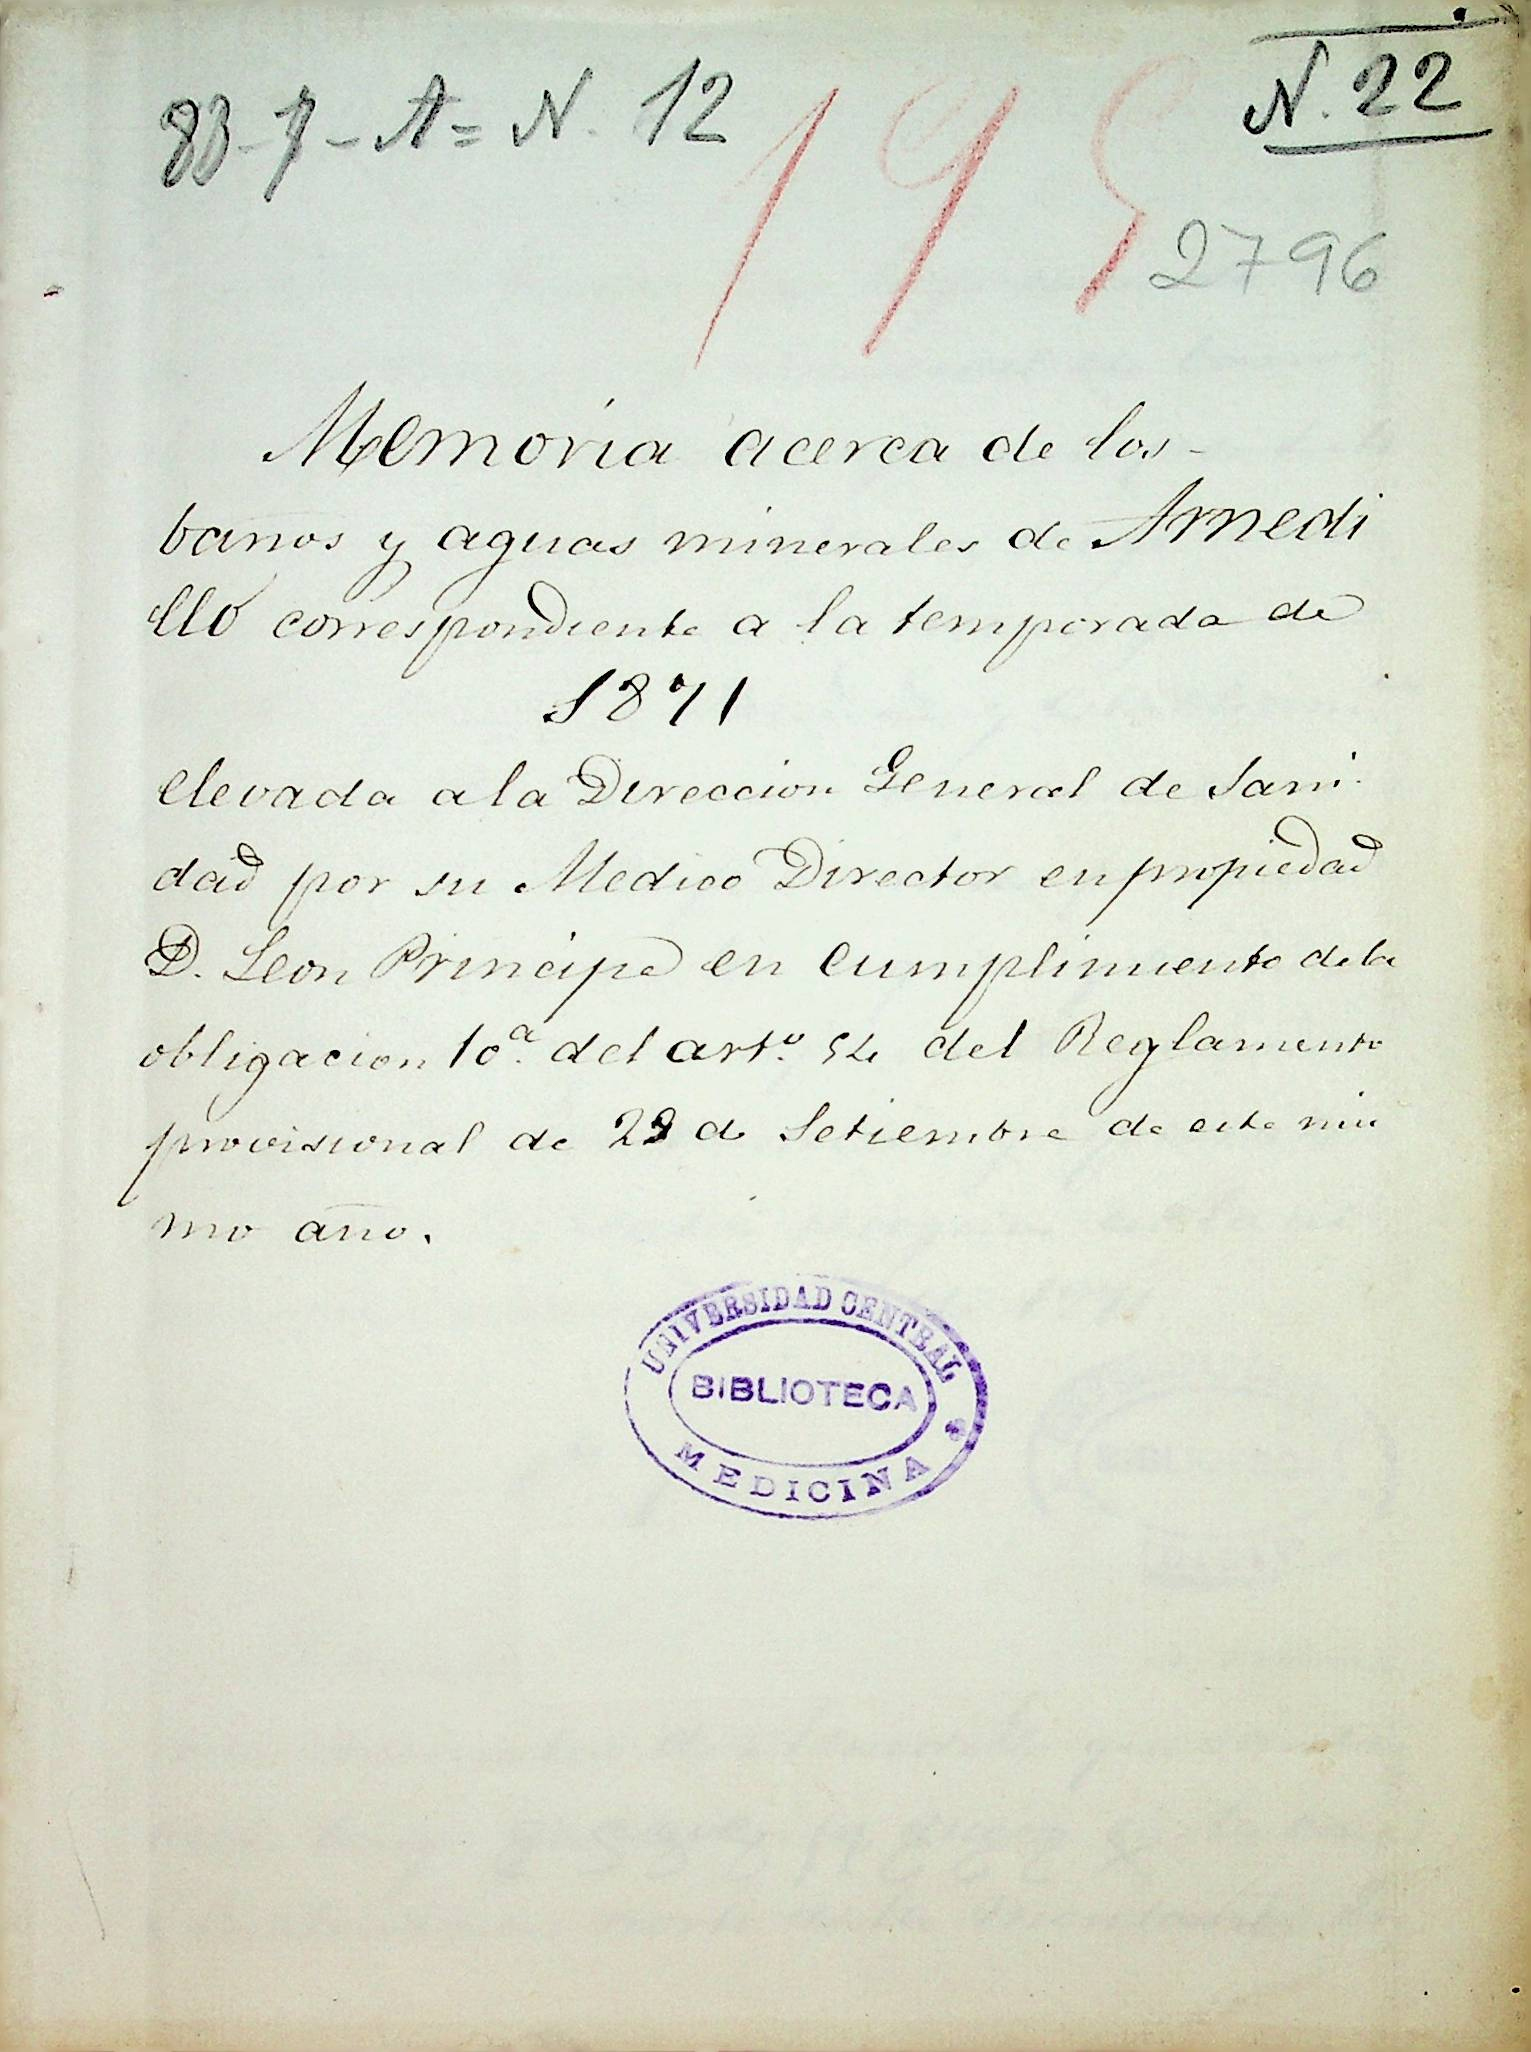 N. 22
83-7-A= N. 12
195
2796
Memoria acerca de los-
baños y aguas minerales de Arnedi
llo correspondiente a la temporada de
1871
elevada a la Direccion General de Sani-
dad por su Medico Director en propiedad
D. Leon Principe en cumplimiento de la
obligacion 10ª. del artº. 54 del Reglamento
provisional de 29 de Setiembre de este mis
mo año.
UNIVERSIDAD CENTRAL
BIBLIOTECA
MEDICINA